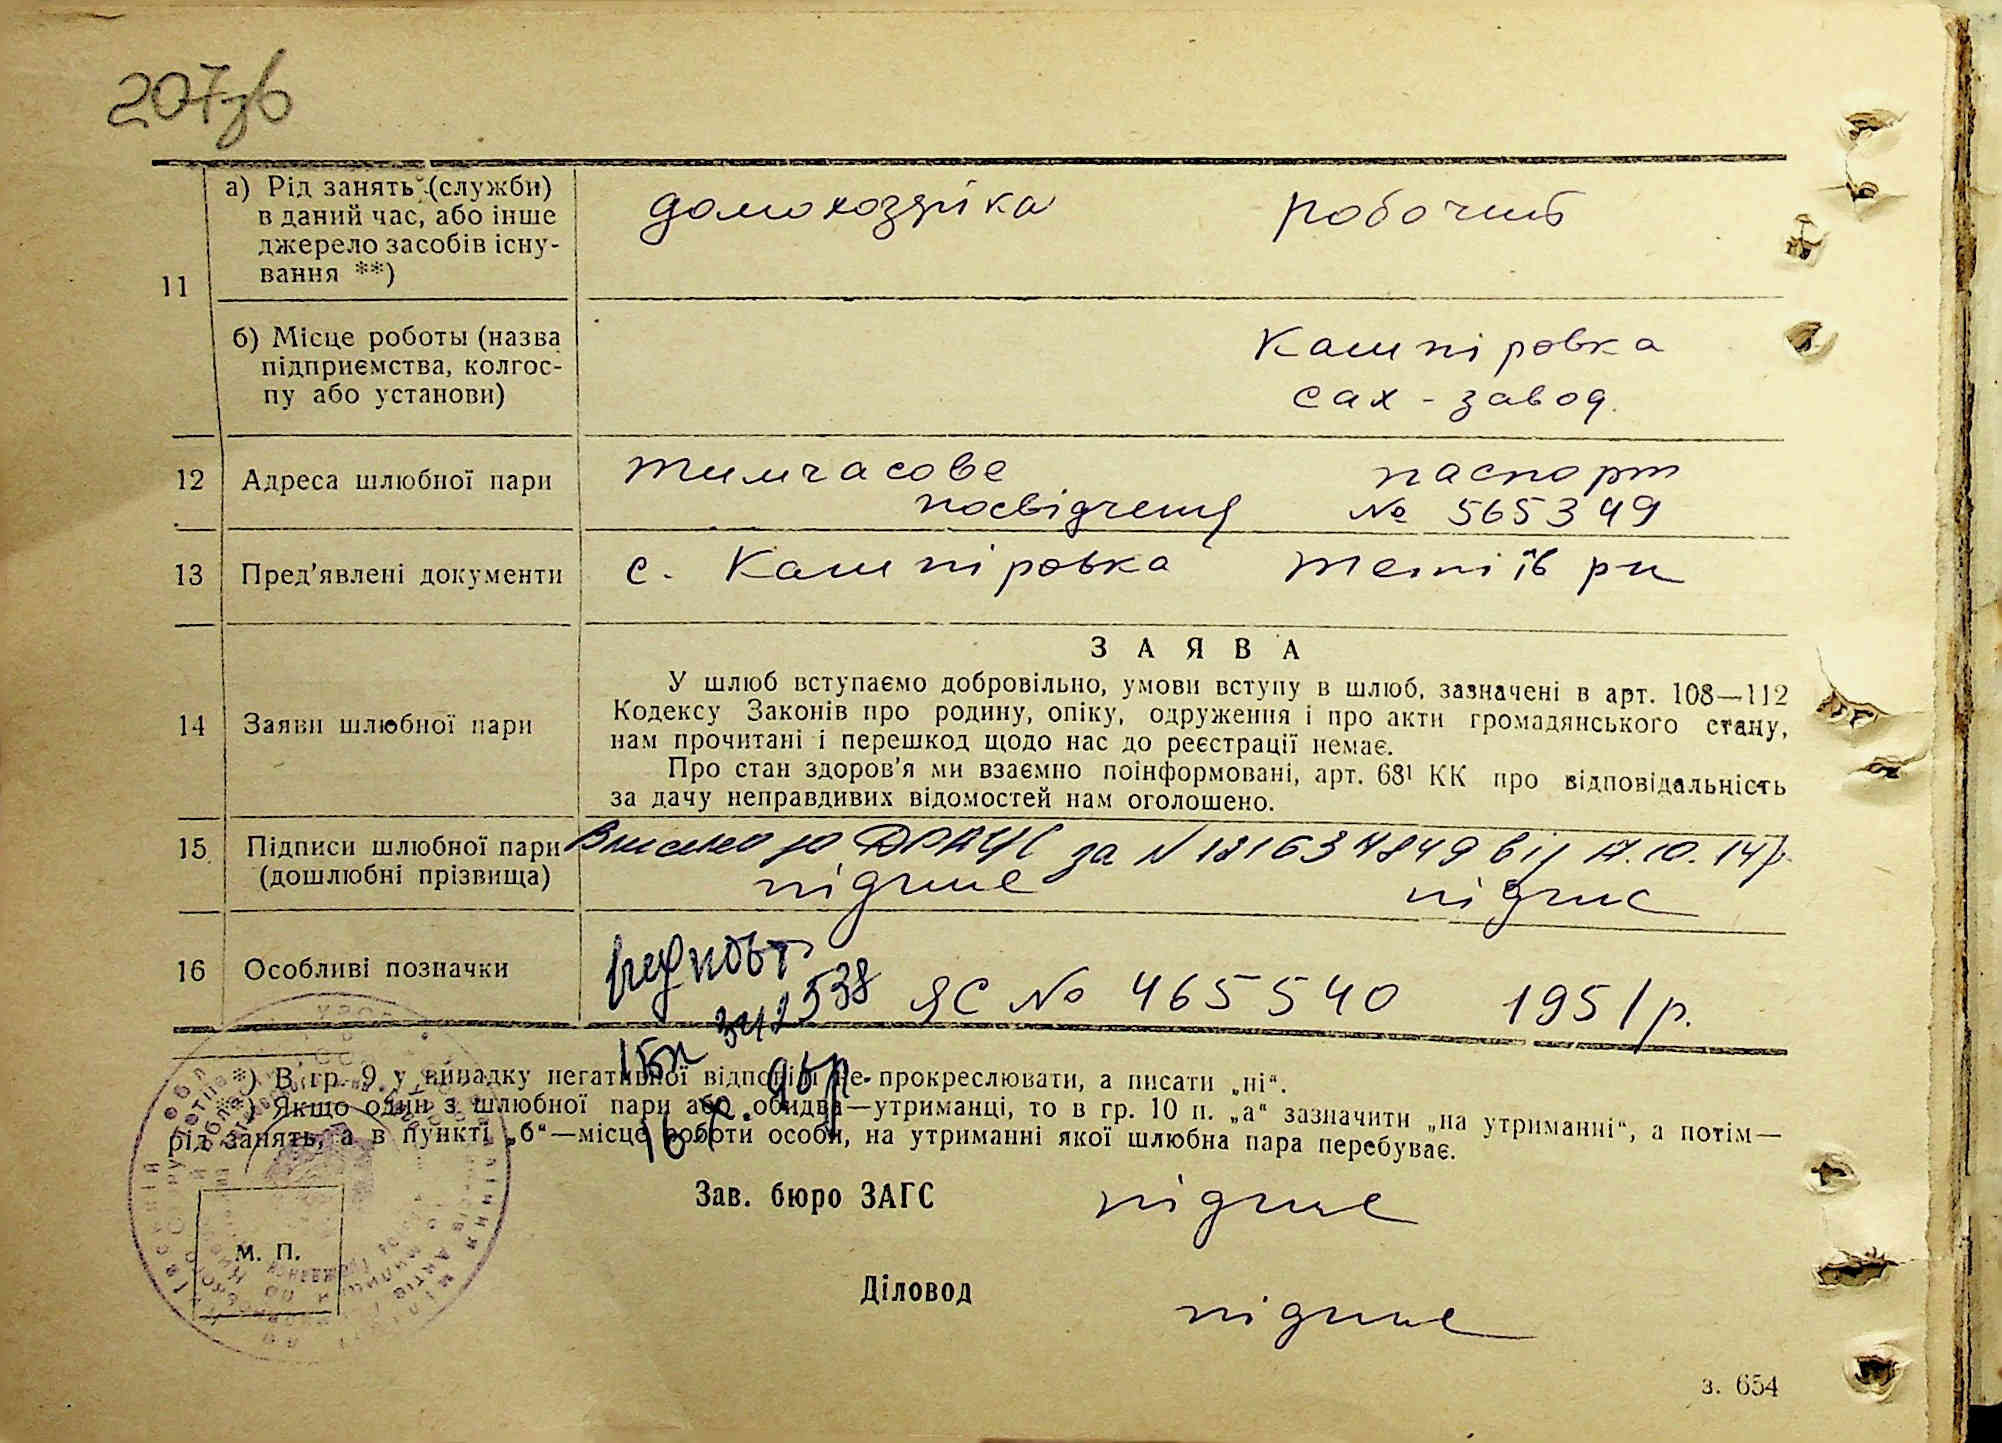 207зв
а) Рід занять (служби)
в даний час, або інше
джерело засобів існу-
вання **)
домохозяйка
робочий
11
б) Місце роботы (назва
підприємства, колгос-
пу або установи)
Кашпіровка
сах-завод.
12 Адреса шлюбної пари
тимчасове
посвідчення
паспорт
№ 565349
13 Пред'явлені документи
с. Кашпіровка Тетіїв рн
14 Заяви шлюбної пари
ЗАЯВА
У шлюб вступаємо добровільно, умови вступу в шлюб, зазначені в арт. 108—112
Кодексу Законів про родину, опіку, одруження і про акти громадянського стану,
нам прочитані і перешкод щодо нас до реєстрації немає.
Про стан здоров'я ми взаємно поінформовані, арт. 68¹ КК про відповідальність
за дачу неправдивих відомостей нам оголошено.
15 Підписи шлюбної пари
(дошлюбні прізвища)
Внесено до ДРАЦС за № 181634849 від 17.10.14р.
підпис підпис
16 Особливі позначки
ЯС № 465540 1951р.
*) В гр. 9 у випадку негативної відповіді не прокреслювати, а писати „ні“.
**) Якщо один з шлюбної пари або обидва—утриманці, то в гр. 10 п. „а“ зазначити „на утриманні“, а потім—
рід занять, а в пункті „б“—місце роботи особи, на утриманні якої шлюбна пара перебуває.
Зав. бюро ЗАГС підпис
М. П.
Діловод підпис
з. 654